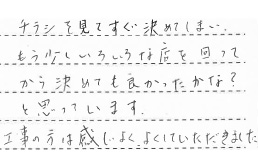 チラシを見てすぐ決めてしまい、
もう少しいろいろな店を回って
から決めても良かったかな?
と思っています。
工事の方は感じよくよくしていただきました